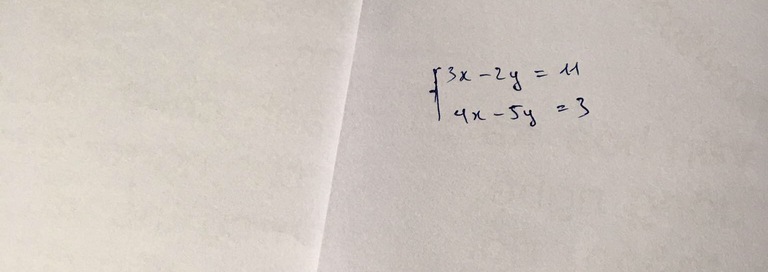 3x - 2y = 11
4x - 5y = 3